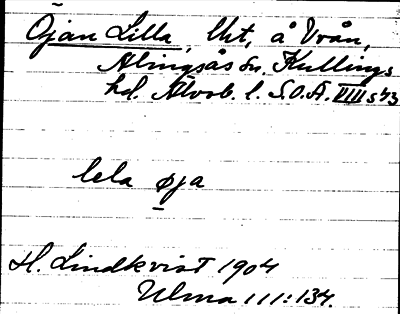 Öjan Lilla, lht, å Vrån,
Alingsås sn. Kullings
hd. Älvsb. l. S.O.Ä. VIII s 43
lela øja
H. Lindkvist 1904
Ulma 111:134.